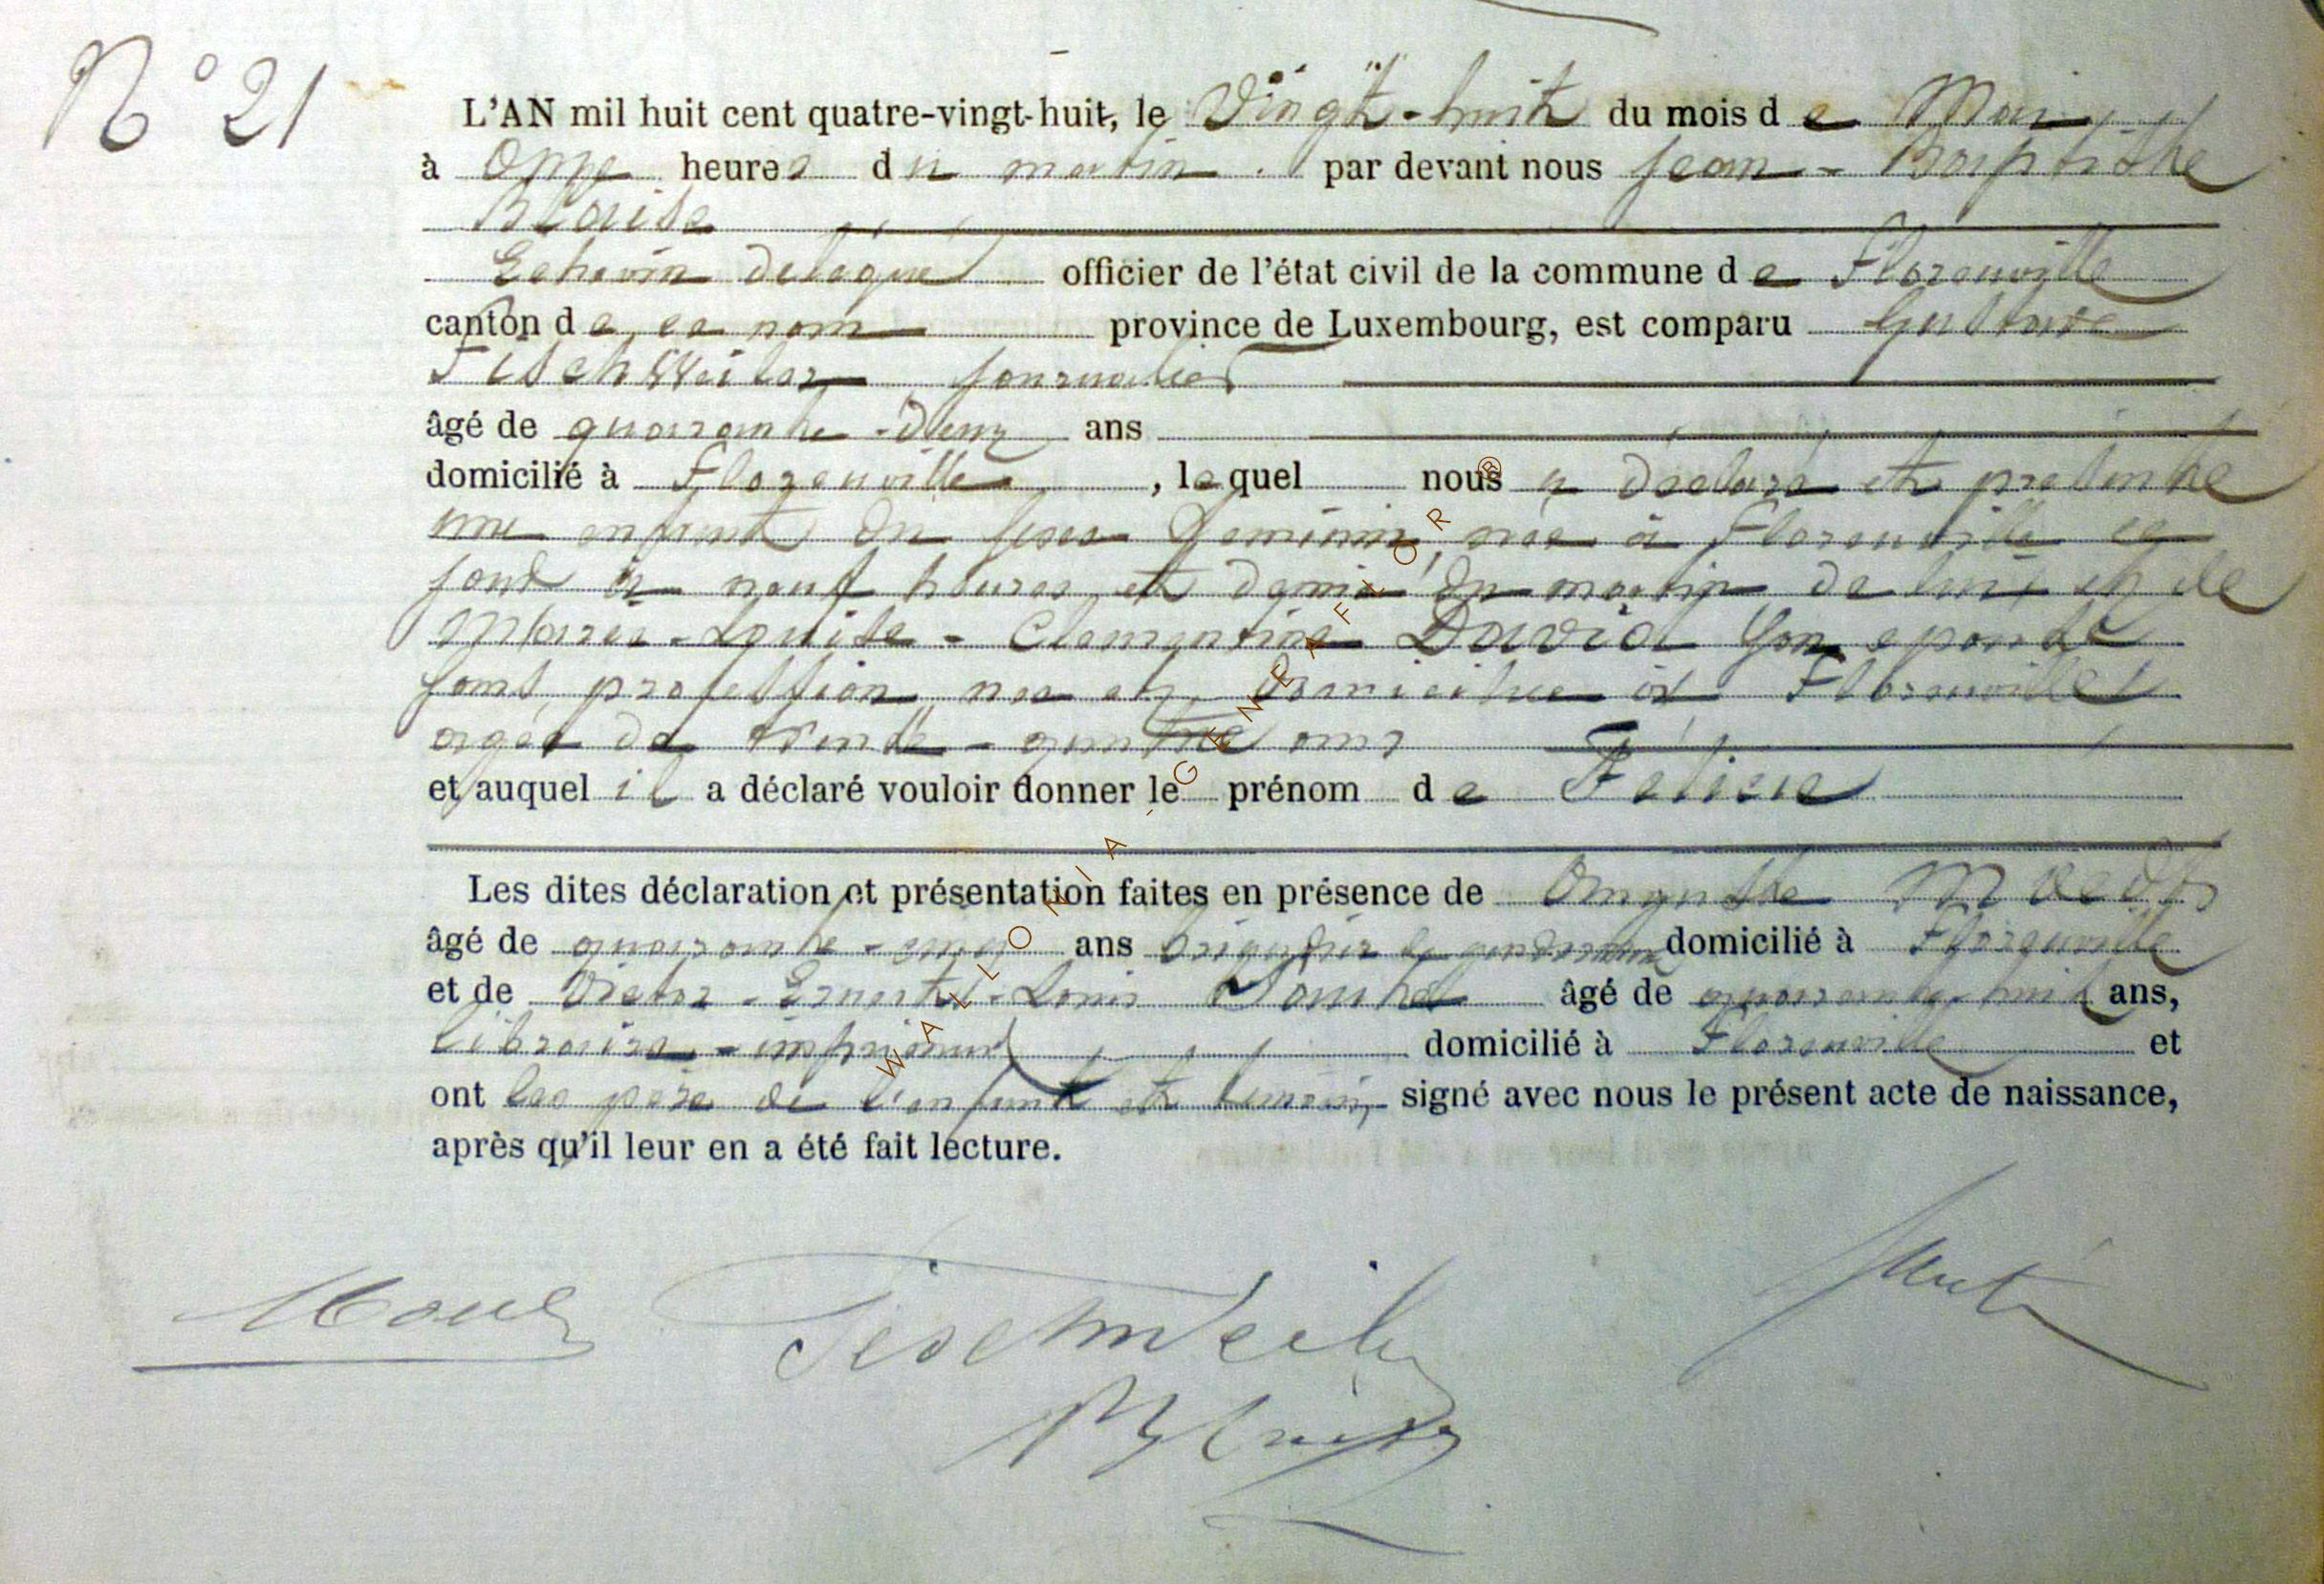 N° 21
L'AN mil huit cent quatre-vingt-huit, le Vingt-huit du mois de Mai
à onze heures du matin par devant nous Jean-Baptiste
Blaise
Echevin délégué officier de l'état civil de la commune de Florenville
canton de ce nom province de Luxembourg, est comparu Gustave
Fischweiler journalier
âgé de quarante-deux ans
domicilié à Florenville, lequel nous a déclaré et présenté
une enfant du sexe féminin, née à Florenville ce
jourd à neuf heures et demie du matin de lui et de
Marie-Louise-Clementine David son épouse
sans profession née et domiciliée à Florenville
agée de trente-quatre ans
et auquel il a déclaré vouloir donner le prénom de
Les dites déclaration et présentation faites en présence de Auguste
âgé de quarante-cinq ans brigadier de gendarmerie domicilié à Florenville
et de Victor-Ernest-Louis âgé de quarante-huit ans,
libraire-imprimeur domicilié à Florenville et
ont les père de l'enfant et témoins signé avec nous le présent acte de naissance,
après qu'il leur en a été fait lecture.
WALLONIA-GENEAFLOR®